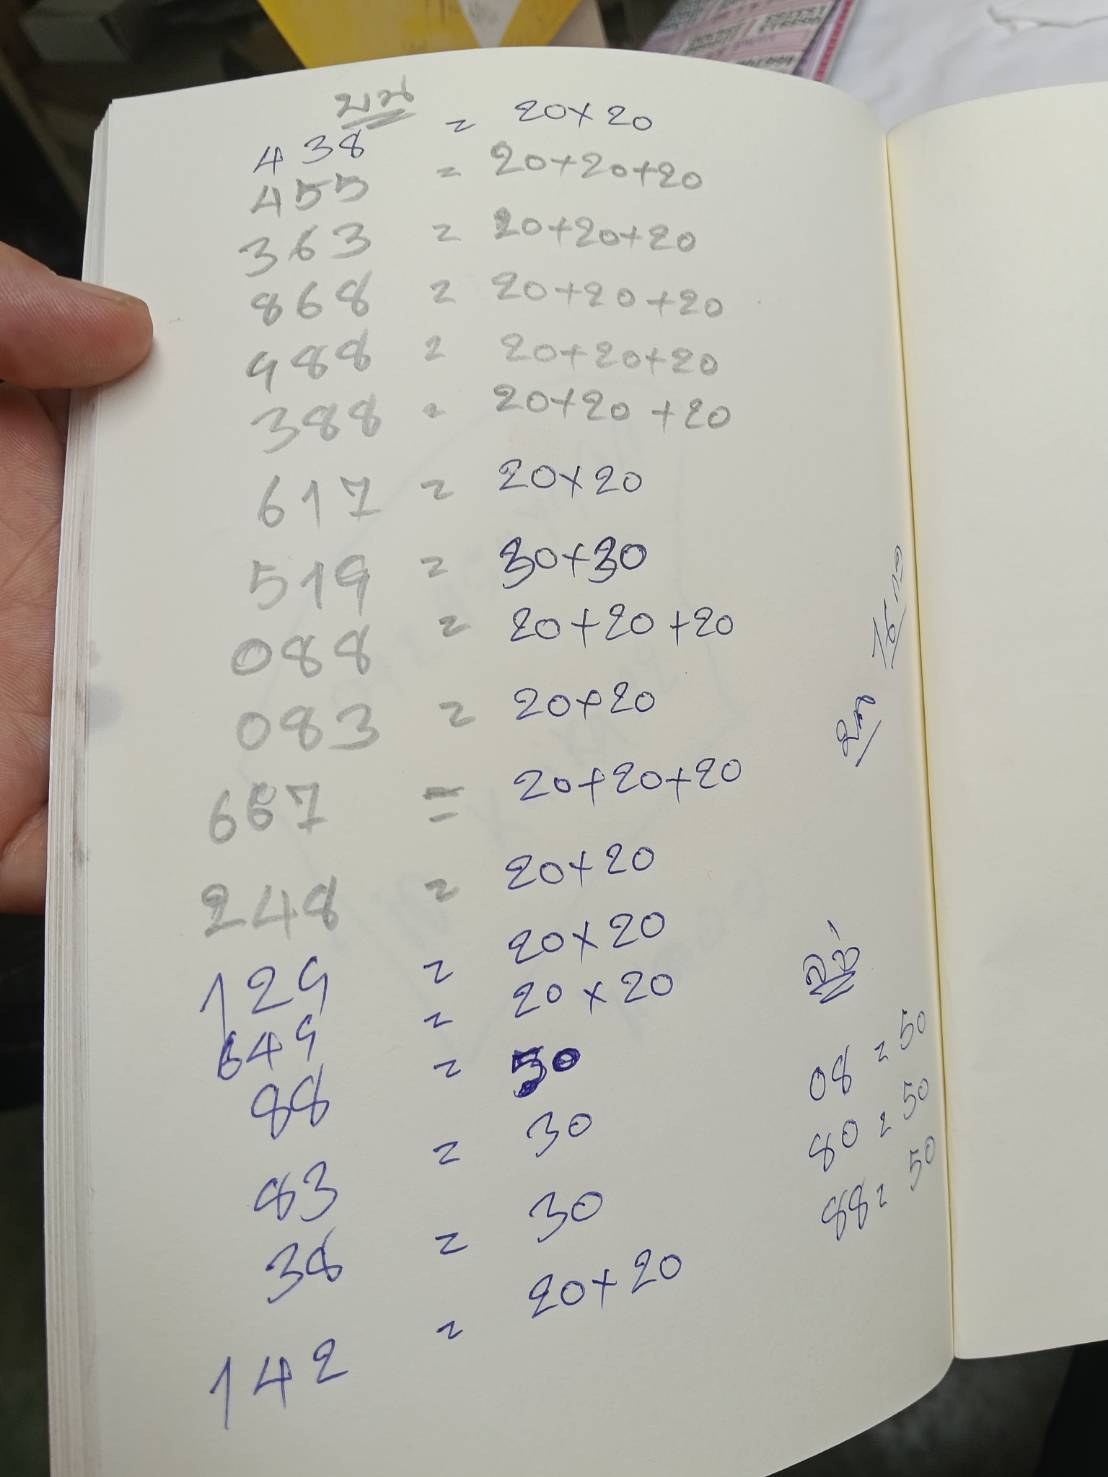 บน
438 = 20×20
455 = 20+20+20
363 = 20+20+20
868 = 20+20+20
988 = 20+20+20
388 = 20+20+20
617 = 20×20
519 = 30+30
088 = 20+20+20
083 = 20+20
667 = 20+20+20
248 = 20+20
129 = 20×20
649 = 20×20
88 = 50
83 = 30
38 = 30
142 = 20+20
ล่าง
08 = 50
80 = 50
88 = 50